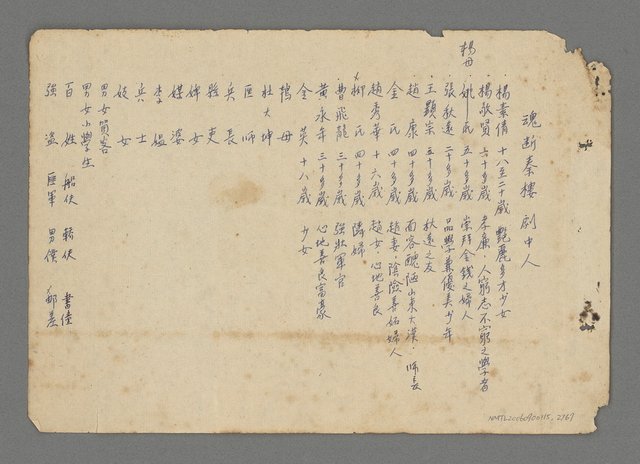 魂斷秦樓 劇中人
楊素倩 十八至二十歲 艷麗多才少女
楊敬賢 六十多歲 孝廉．人窮志不窮之學者
楊母 姚氏 五十多歲 崇拜金錢之婦人
張秋遠 二十多歲 品學兼優美少年
王顯榮 五十多歲 秋遠之友
趙康 四十多歲 面容醜陋山東大漢．師長
金氏 四十多歲 趙妻．陰險善妬婦人
趙秀華 十六歲 趙女．心地善良
柳氏 四十多歲 隣婦
曹飛龍 三十多歲 強壯軍官
黃永年 三十多歲 心地善良富豪
金英 十八歲 少女
鴇母
杜大坤
匪師
兵長
縣吏
婢女
媒婆
李媼
兵士
妓女
男女賀客
男女小學生
百姓 船伕 轎伕 書僮
強盜 匪軍 男僕 郵差
NMTL20060400115_2767